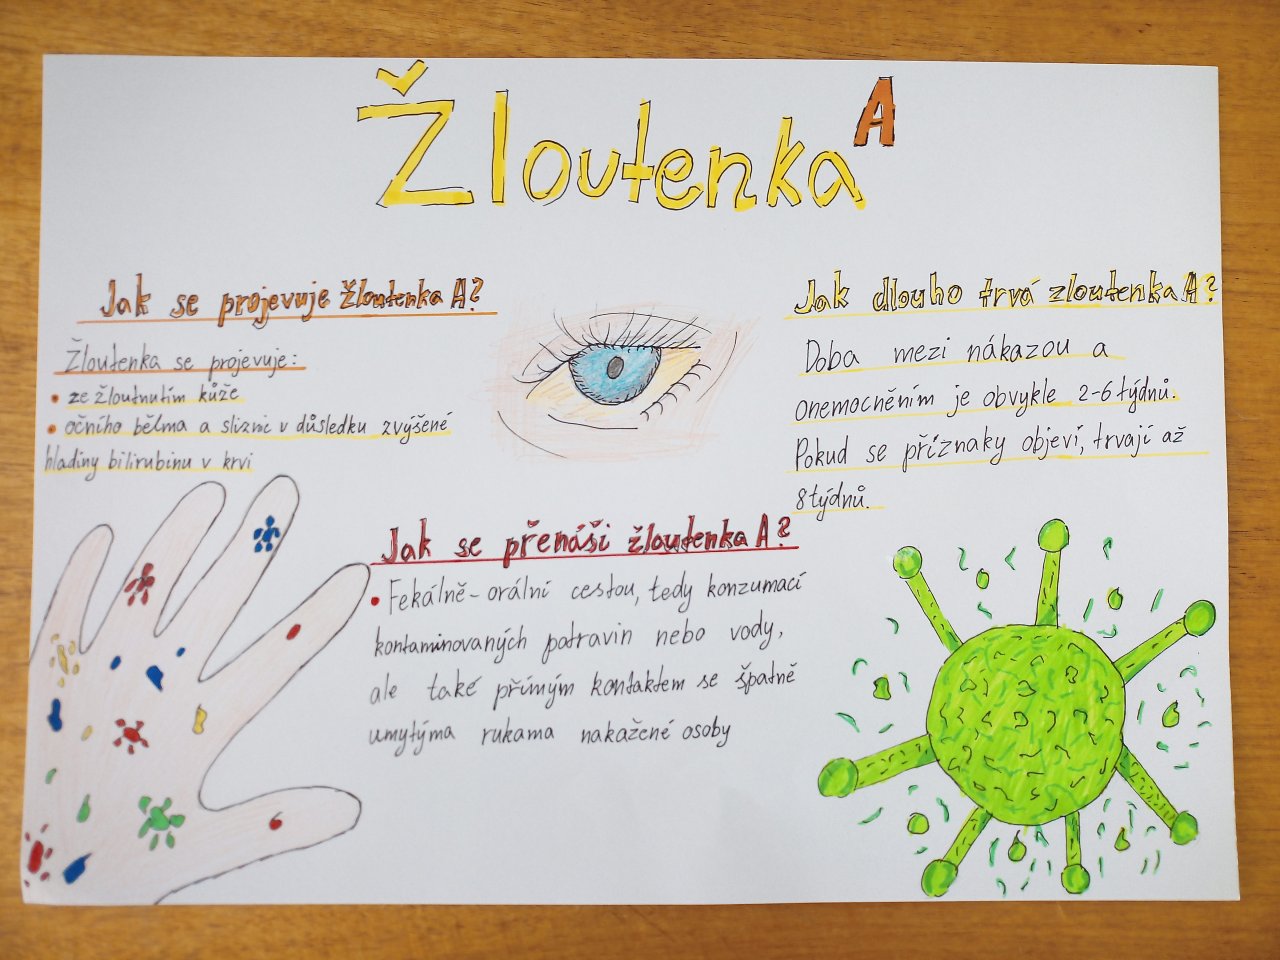 Žloutenka A
Jak se projevuje žloutenka A?
Žloutenka se projevuje:
• ze žloutnutím kůže
• očního bělma a sliznic v důsledku zvýšené
hladiny bilirubinu v krvi
Jak dlouho trvá zloutenka A?
Doba mezi nákazou a
onemocněním je obvykle 2-6 týdnů.
Pokud se příznaky objeví, trvají až
8 týdnů.
Jak se přenáši žloutenka A?
• Fekálně-orální cestou, tedy konzumací
kontaminovaných potravin nebo vody,
ale také přímým kontaktem se špatně
umytýma rukama nakažené osoby